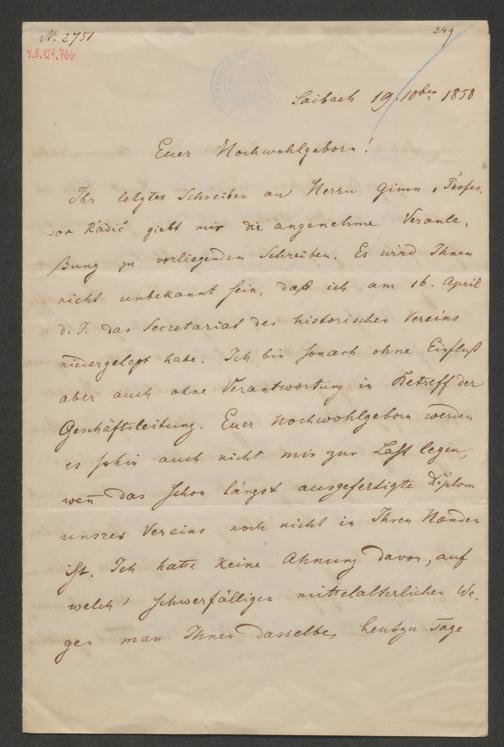 N. 2751
249
I.N. 129.766
Laibach 19. 10ber 1858
Euer Hochwohlgeborn!
Ihr letztes Schreiben an Herrn Gimn. Profes-
sor Radić giebt mir die angenehme Veranla-
ßung zu vorliegenden Schreiben. Es wird Ihnen
nicht unbekannt sein, daß ich am 16. April
d. J. das Secretariat des historischen Vereins
niedergelegt habe. Ich bin sonach ohne Einfluß
aber auch ohne Verantwortung in Betreff der
Geschäftsleitung. Euer Hochwohlgeborn werden
es sohin auch nicht mir zur Last legen,
wen̄ das schon längst ausgefertigte Diplom
unsres Vereins noch nicht in Ihren Händen
ist. Ich hatte keine Ahnung davon, auf
welch' schwerfälligen mittelalterlichen We-
gen man Ihnen dasselbe, heutzu Tage